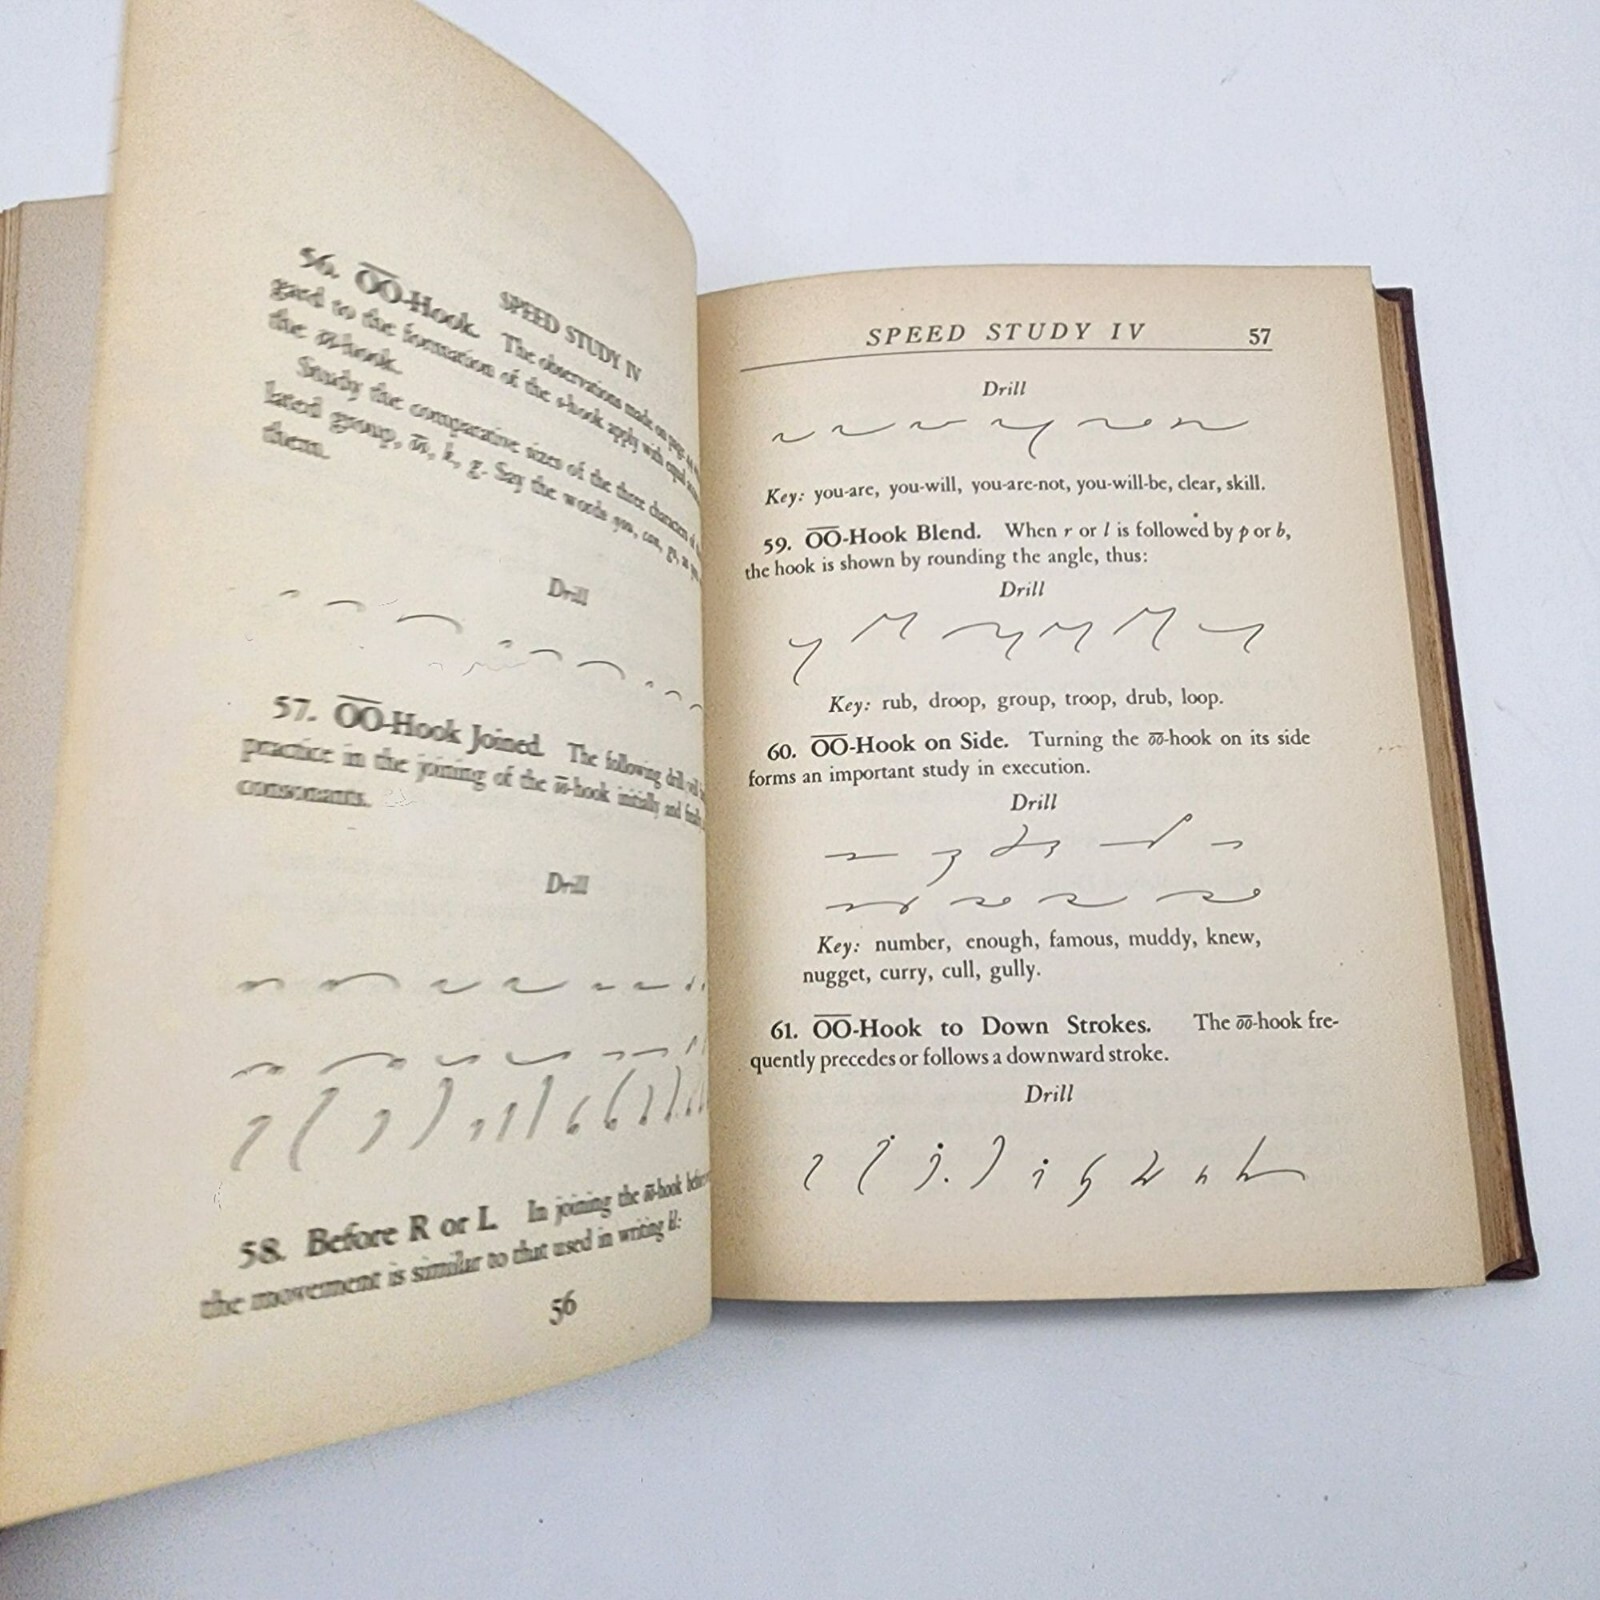 SPEED STUDY IV
56. O͞O-Hook. The observations made on page
gard to the formation of the s-hook apply with equal
the o͞o-hook.
Study the comparative sizes of the three characters of
lated group, o͞o, k, g. Say the words you, can, go, as you
them.
Drill
57. O͞O-Hook Joined. The following drill will
practice in the joining of the o͞o-hook initially and finally
consonants.
Drill
58. Before R or L. In joining the o͞o-hook before
the movement is similar to that used in writing kl:
56
SPEED STUDY IV 57
Drill
Key: you-are, you-will, you-are-not, you-will-be, clear, skill.
59. O͞O-Hook Blend. When r or l is followed by p or b,
the hook is shown by rounding the angle, thus:
Drill
Key: rub, droop, group, troop, drub, loop.
60. O͞O-Hook on Side. Turning the o͞o-hook on its side
forms an important study in execution.
Drill
Key: number, enough, famous, muddy, knew,
nugget, curry, cull, gully.
61. O͞O-Hook to Down Strokes. The o͞o-hook fre-
quently precedes or follows a downward stroke.
Drill